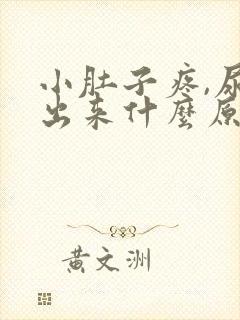 小肚子疼,尿
出来什麼原
黄文洲